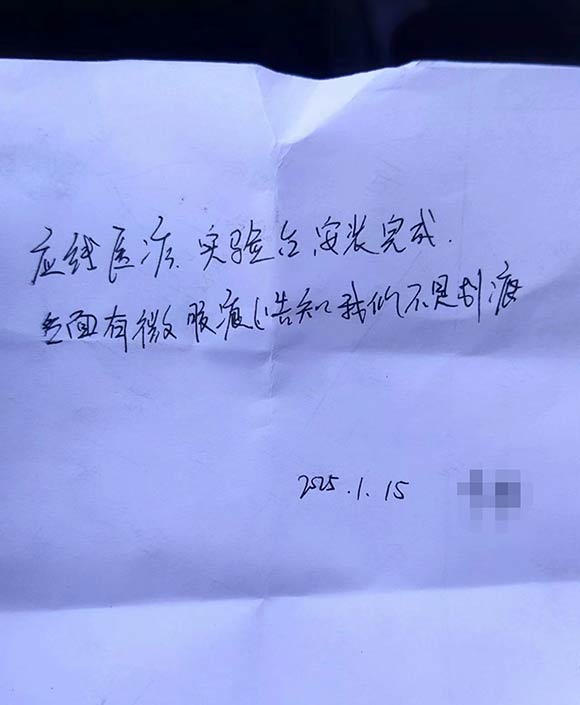 应线医疗实验台安装完成.
台面有微服痕(告知我们不是划痕
2025.1.15